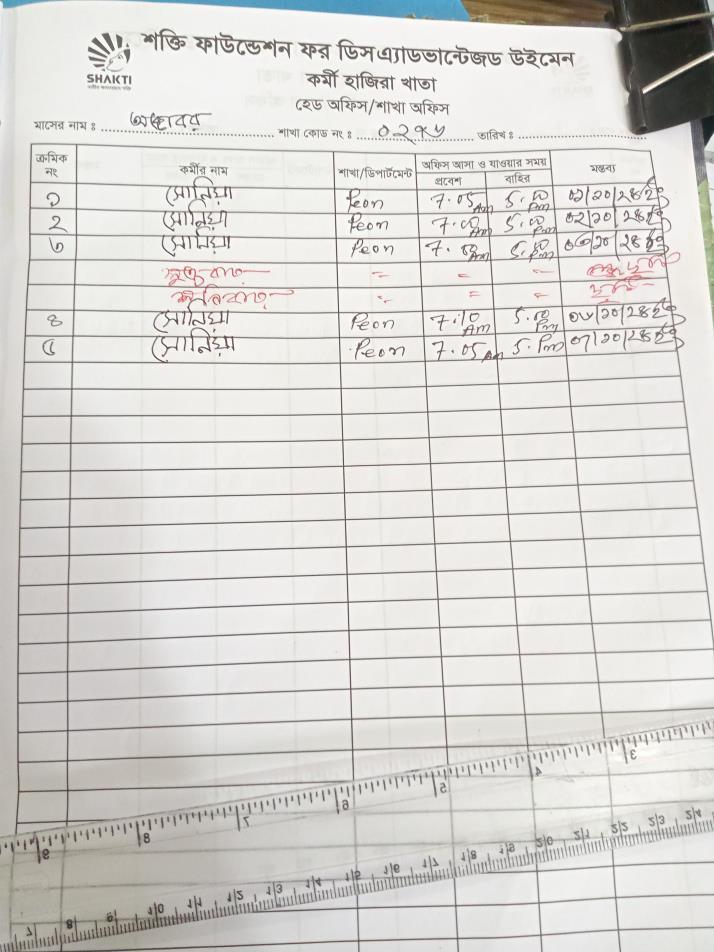 শক্তি ফাউন্ডেশন ফর ডিসএ্যাডভান্টেজড উইমেন
SHAKTI
কর্মী হাজিরা খাতা
হেড অফিস/শাখা অফিস
মাসের নাম ঃ অক্টোবর শাখা কোড নং ঃ ০২৭৬ তারিখ ঃ
ক্রমিক নং কর্মীর নাম শাখা/ডিপার্টমেন্ট অফিস আসা ও যাওয়ার সময় মন্তব্য
প্রবেশ বাহির
১ সোনিয়া Peon 7.05 Am 5.00 Pm ০১/১০/২৪
২ সোনিয়া Peon 7.00 Am 5.00 Pm ০২/১০/২৪
৩ সোনিয়া Peon 7.00 Am 5.00 Pm ০৩/১০/২৪
শুক্রবার = = = ছুটি
শনিবার = = = ছুটি
৪ সোনিয়া Peon 7.10 Am 5.00 Pm ০৬/১০/২৪
৫ সোনিয়া Peon 7.05 Am 5. Pm ০৭/১০/২৪
9 8 7 6 5 4 3